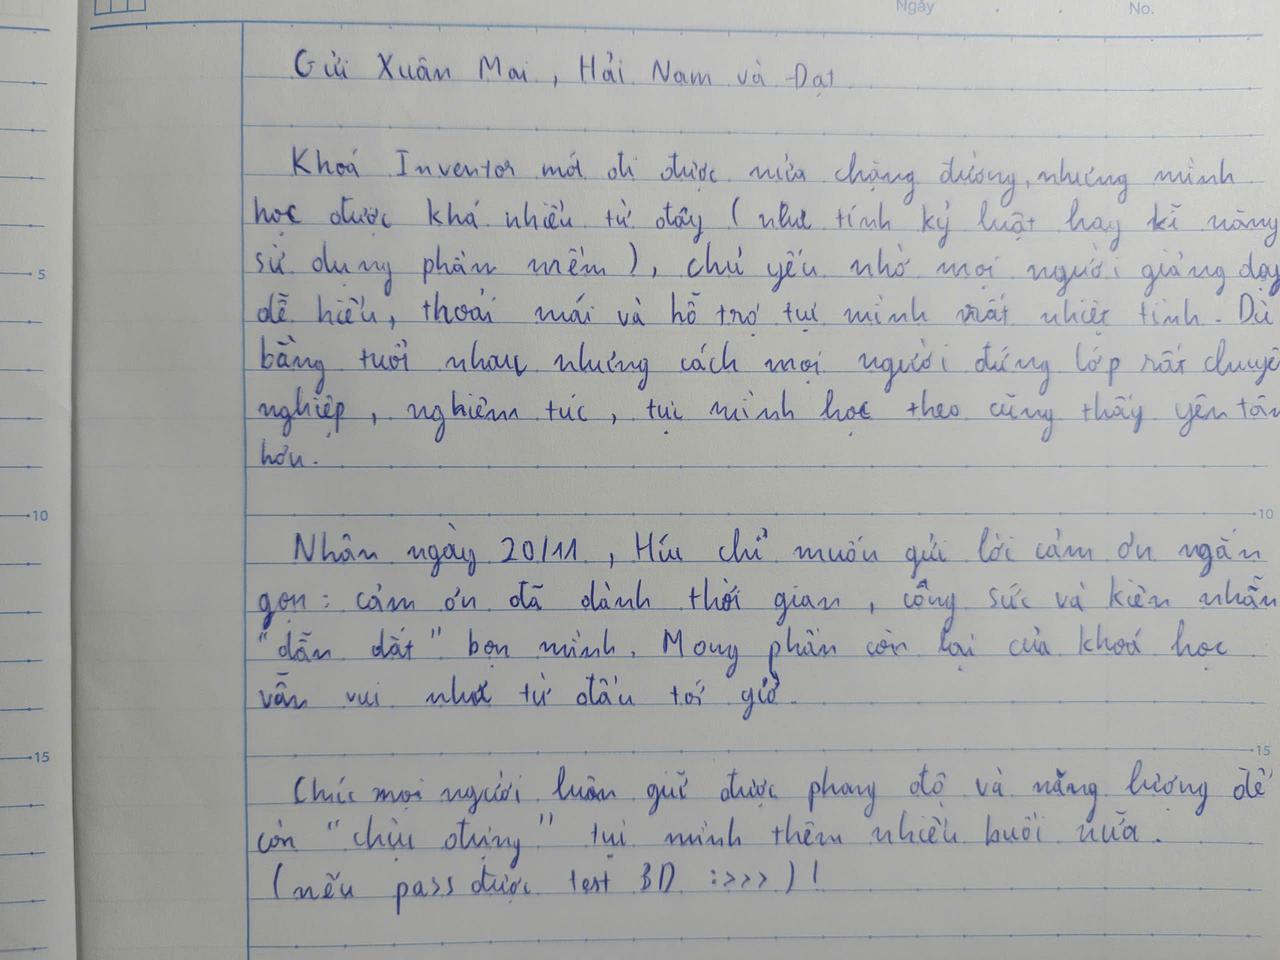 Ngày No.
Gửi Xuân Mai, Hải Nam và Đạt
Khoá Inventor mới đi được nửa chặng đường, nhưng mình
học được khá nhiều từ đây (như tính kỷ luật hay kĩ năng
sử dụng phần mềm), chủ yếu nhờ mọi người giảng dạy
dễ hiểu, thoải mái và hỗ trợ tụi mình rất nhiệt tình. Dù
bằng tuổi nhau nhưng cách mọi người đứng lớp rất chuyê
nghiệp, nghiêm túc, tụi mình học theo cũng thấy yên tâm
hơn.
Nhân ngày 20/11, chỉ muốn gửi lời cảm ơn ngắn
gọn: cảm ơn đã dành thời gian, công sức và kiên nhẫn
"dẫn dắt" bọn mình. Mong phần còn lại của khoá học
vẫn vui như từ đầu tới giờ.
Chúc mọi người luôn giữ được phong độ và năng lượng để
còn "chịu đựng" tụi mình thêm nhiều buổi nữa.
(nếu pass được test 3D :>>>)!
5
10
15
10
15